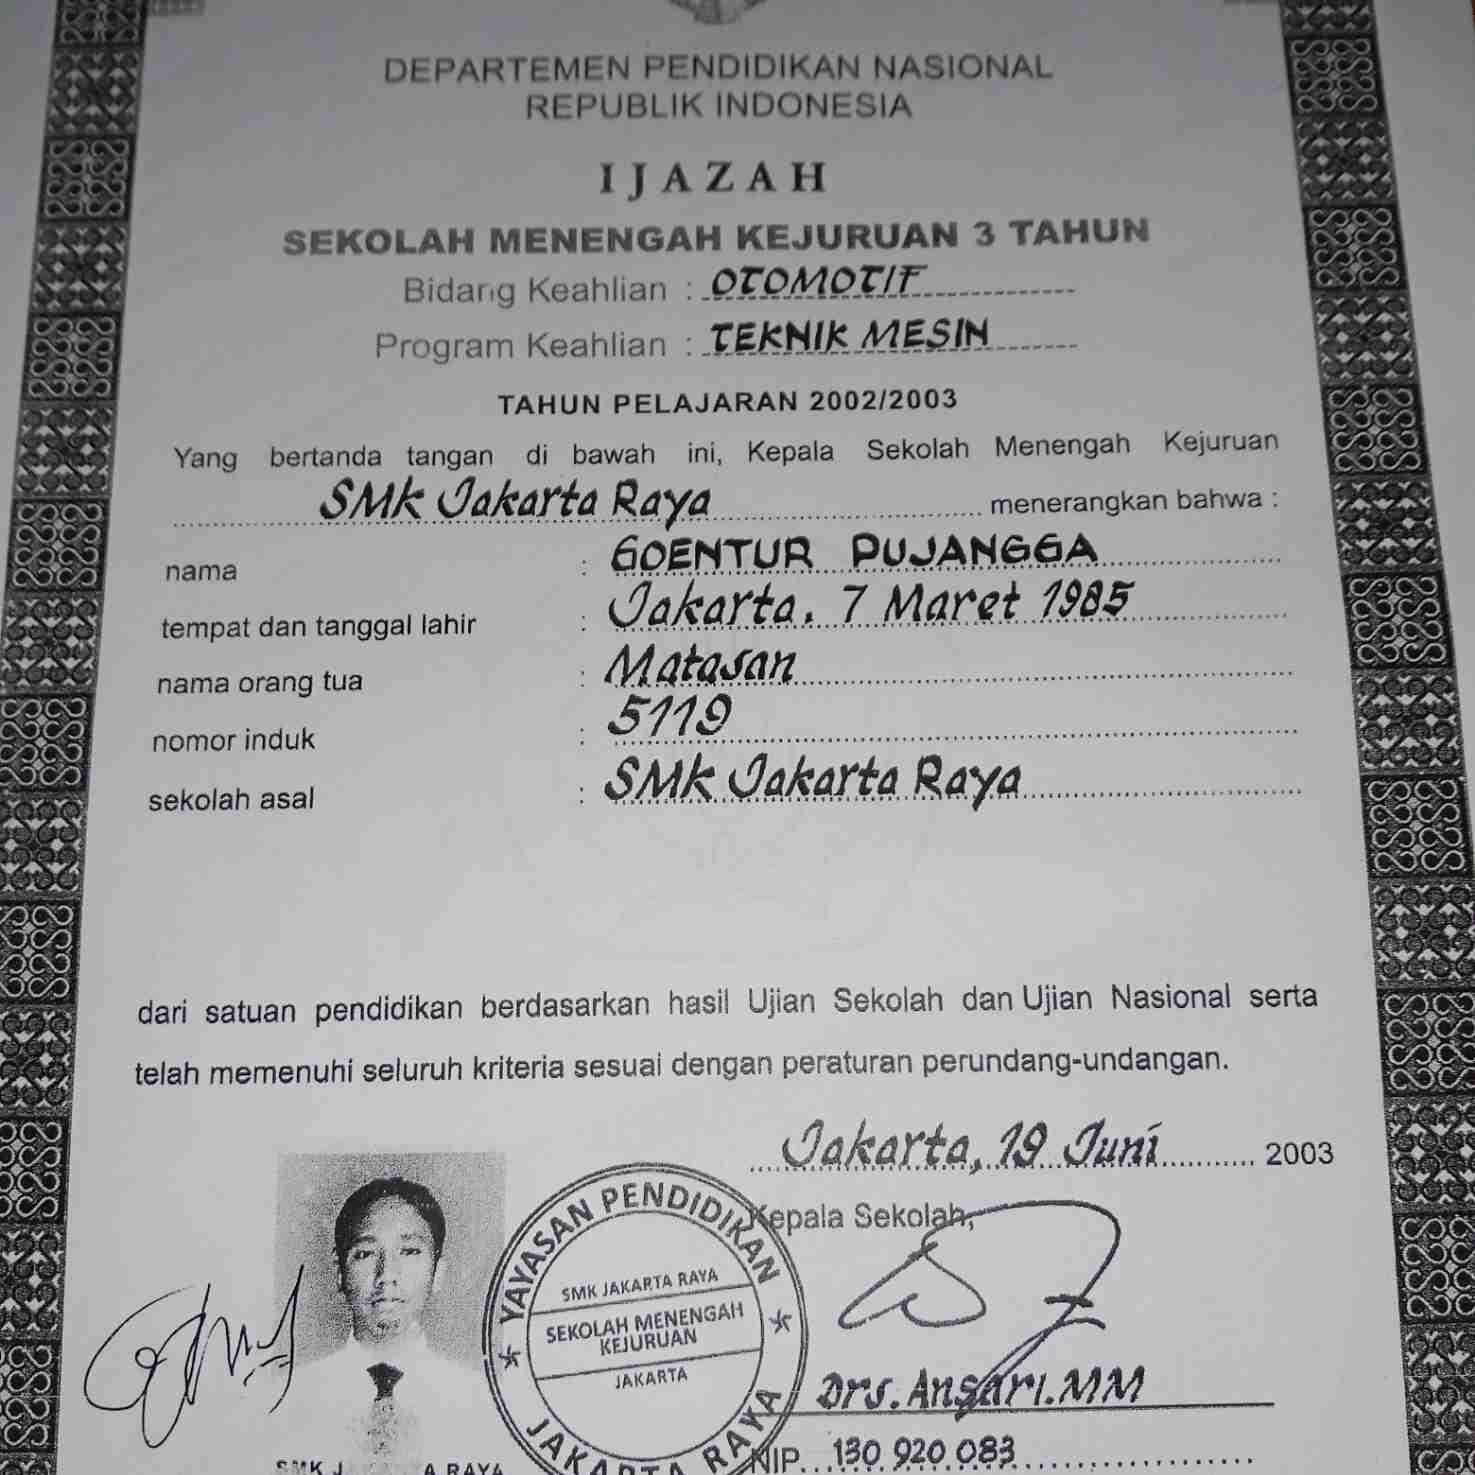 DEPARTEMEN PENDIDIKAN NASIONAL
REPUBLIK INDONESIA
IJAZAH
SEKOLAH MENENGAH KEJURUAN 3 TAHUN
Bidang Keahlian : OTOMOTIF
Program Keahlian : TEKNIK MESIN
TAHUN PELAJARAN 2002/2003
Yang bertanda tangan di bawah ini, Kepala Sekolah Menengah Kejuruan
SMK Jakarta Raya menerangkan bahwa :
nama : GOENTUR PUJANGGA
tempat dan tanggal lahir : Jakarta, 7 Maret 1985
nama orang tua : Matasan
nomor induk : 5119
sekolah asal : SMK Jakarta Raya
dari satuan pendidikan berdasarkan hasil Ujian Sekolah dan Ujian Nasional serta
telah memenuhi seluruh kriteria sesuai dengan peraturan perundang-undangan.
Jakarta, 19 Juni 2003
Kepala Sekolah,
YAYASAN PENDIDIKAN
SMK JAKARTA RAYA
SEKOLAH MENENGAH
KEJURUAN
JAKARTA
JAKARTA RAYA
Drs. Ansari.MM
NIP. 130 920 083